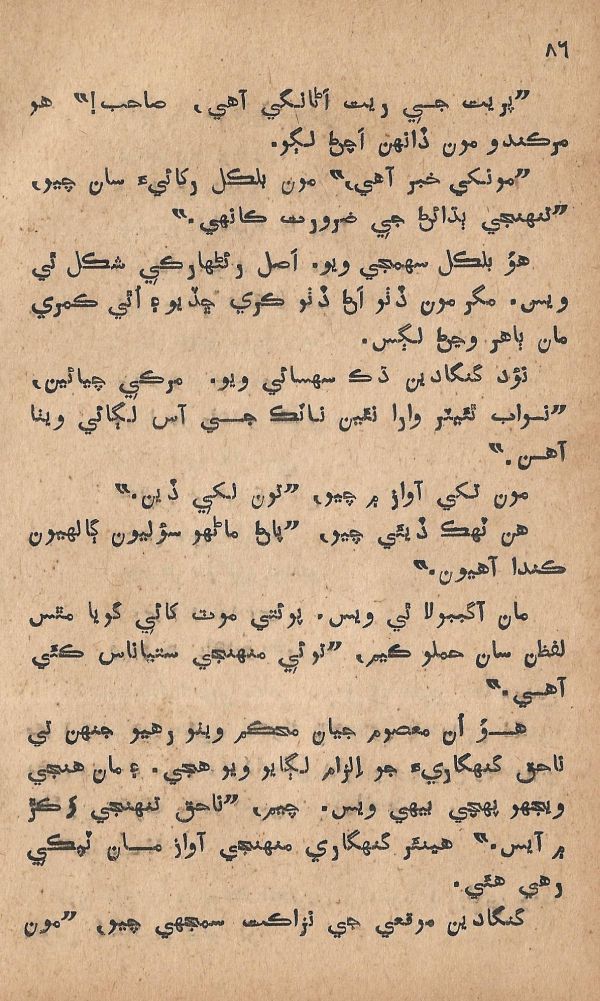 ٨٦
”پريت جي ريت اَڻانگي آهي، صاحب!“ هو
مرڪندو مون ڏانهن اَچڻ لڳو.
”مونکي خبر آهي،“ مون بلڪل رکائيءَ سان چيو،
”تنهنجي ٻڌائڻ جي ضرورت ڪانهي.“
هوُ بلڪل سهمجي ويو. اَصل رئڻهارڪي شڪل ٿي
ويس. مگر مون ڏٺو اَڻ ڏٺو ڪري ڇڏيو ۽ اُٿي ڪمري
مان ٻاهر وڃڻ لڳس.
تڏد گنگادين ڌڪ سهسائي ويو. مرڪي چيائين،
”نواب ٿيئٽر وارا نئين ناٽڪ جي آس لڳائي ويٺا
آهن.“
مون تکي آواز ۾ چيو، ”تون لکي ڏين.“
هن ٽهڪ ڏيئي چيو، ”پاڻ ماڻهو سؤليون ڳالهيون
ڪندا آهيون.“
مان آگببولا ٿي ويس. پوئتي موٽ کائي گويا مٿس
لفظن سان حملو ڪيم، ”توئي منهنجي ستياناس ڪئي
آهي.“
هوُ اُن معصوم جيان محڪم ويٺو رهيو جنهن تي
ناحق گنهگاريءَ جو اِلزام لڳايو ويو هجي. ۽ مان هنجي
ويجهو پهچي بيهي ويس. چيم، ”ناحق تنهنجي ڦڪڙ
۾ آيس.“ هينئر گنهگاري منهنجي آواز مان ٽمڪي
رهي هئي.
گنگادين موقعي جي نزاڪت سمجهي چيو، ”مون